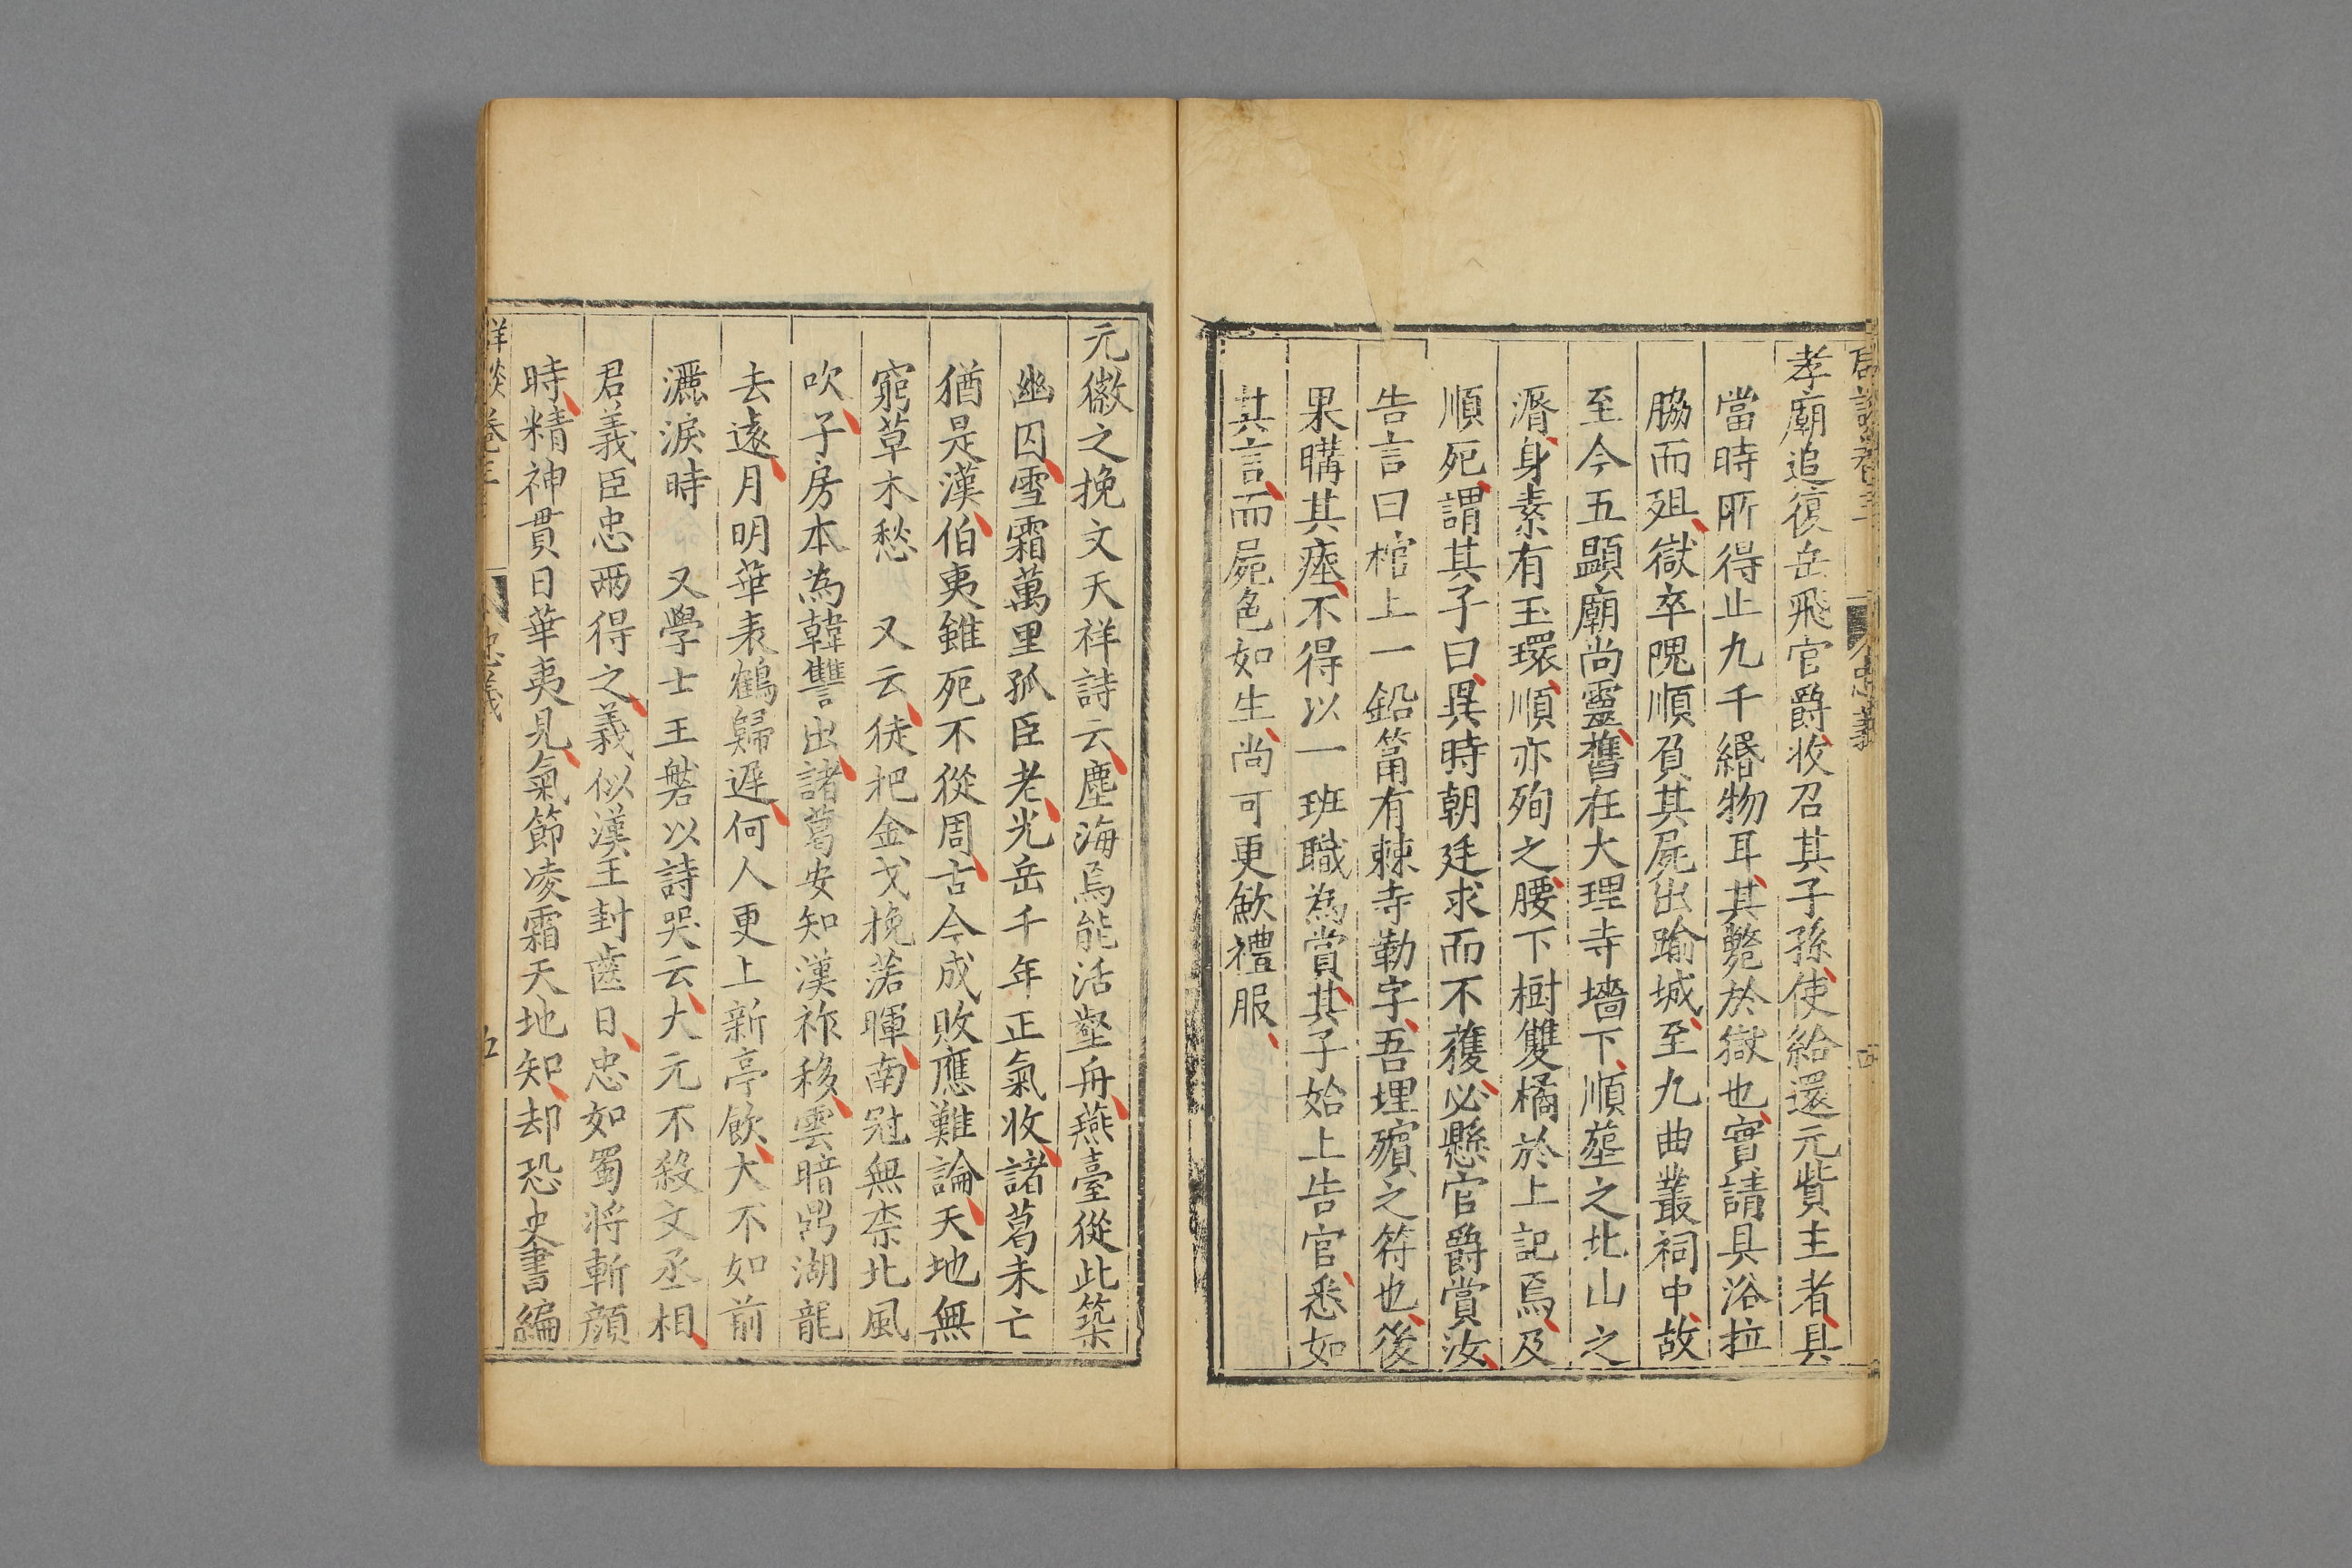 孝廟追復岳飛官爵收召其子孫使給還元貲主者具
當時所得止九千緡物耳其斃於獄也實請具浴拉
脇而殂獄卒隗順負其屍出踰城至九曲叢祠中故
至今五顯廟尚靈舊在大理寺墻下順塟之北山之
漘身素有玉環順亦殉之腰下樹雙橘於上記焉及
順死謂其子曰異時朝廷求而不獲必懸官爵賞汝
告言曰棺上一鉛筩有棘寺勒字吾埋殯之符也後
果購其瘞不得以一班職為賞其子始上告官悉如
其言而屍色如生尚可更歛禮服
元徽之挽文天祥詩云塵海焉能活壑舟燕臺從此築
幽囚雪霜萬里孤臣老光岳千年正氣收諸葛未亡
猶是漢伯夷雖死不從周古今成敗應難論天地無
窮草木愁 又云徒把金戈挽落暉南冠無柰北風
吹子房本為韓讐出諸葛安知漢祚移雲暗鼎湖龍
去遠月明華表鶴歸遲何人更上新亭飲大不如前
灑淚時 又學士王磐以詩哭云大元不殺文丞相
君義臣忠兩得之義似漢王封齒日忠如蜀將斬顔
時精神貫日華夷見氣節凌霜天地知却恐史書編
忠義